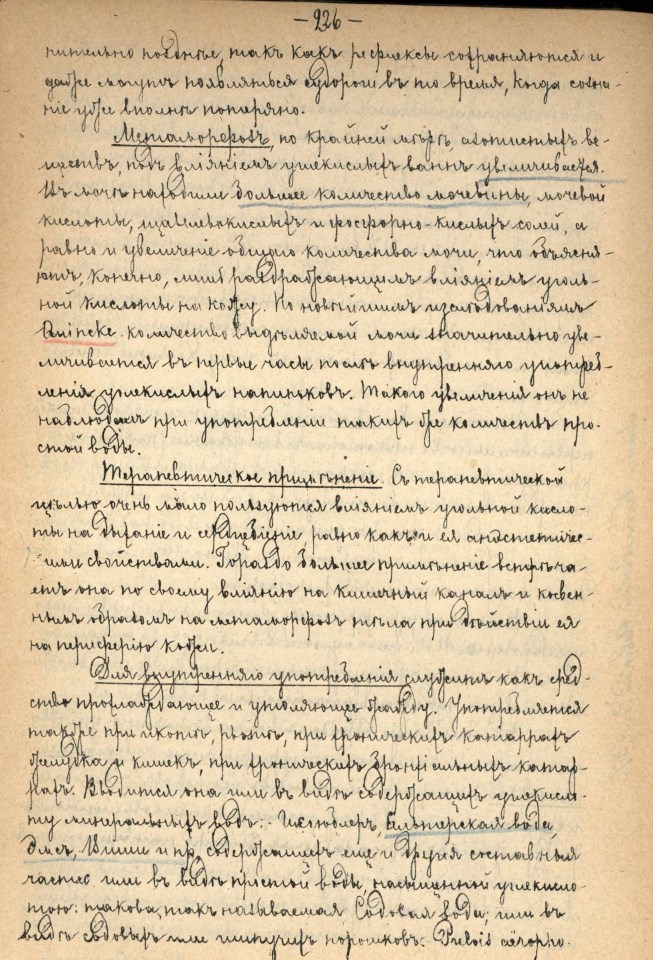 — 226 —
нительно позднѣе, такъ какъ рефлексы сохраняются и
даже могутъ появляться судороги въ то время, когда созна-
ніе уже вполнѣ потеряно.
Метаморфозъ, по крайней мѣрѣ, азотистыхъ ве-
ществъ, подъ вліяніемъ углекислыхъ ваннъ увеличивается.
Въ мочѣ находили большее количество мочевины, мочевой
кислоты, щавелевокислыхъ и фосфорно-кислыхъ солей, а
равно и увеличеніе общаго количества мочи, что объясня-
ютъ, конечно, лишь раздражающимъ вліяніемъ уголь-
ной кислоты на кожу. По новѣйшимъ изслѣдованіямъ
Quincke количество выдѣляемой мочи значительно уве-
личивается въ первые часы послѣ внутренняго употреб-
ленія углекислыхъ напитковъ. Такого увеличенія онъ не
наблюдалъ при употребленіи такихъ же количествъ про-
стой воды.
Терапевтическое примѣненіе. Съ терапевтической
цѣлью очень мало пользуются вліяніемъ угольной кисло-
ты на дыханіе и сердцебіеніе, равно какъ и ея анэстетичес-
кими свойствами. Гораздо большее примѣненіе встрѣча-
етъ она по своему вліянію на кишечный каналъ и косвен-
нымъ образомъ на метаморфозъ тѣла при дѣйствіи ея
на периферію кожи.
Для внутренняго употребленія служитъ какъ сред-
ство прохлаждающее и утоляющее жажду. Употребляется
также при икотѣ, рвотѣ, при хроническихъ катаррахъ
желудка и кишекъ, при хроническихъ бронхіальныхъ катар-
рахъ. Вводится она или въ видѣ содержащихъ углекисло-
ту минеральныхъ водъ: Гисгюблеръ, Сельтерская вода,
Эмсъ, Виши и пр., содержащихъ еще и другія составныя
части или въ видѣ простой воды, насыщенной углекисло-
тою: такова, такъ называемая Содовая вода; или въ
видѣ содовыхъ или шипучихъ порошковъ: Pulvis aëropho-